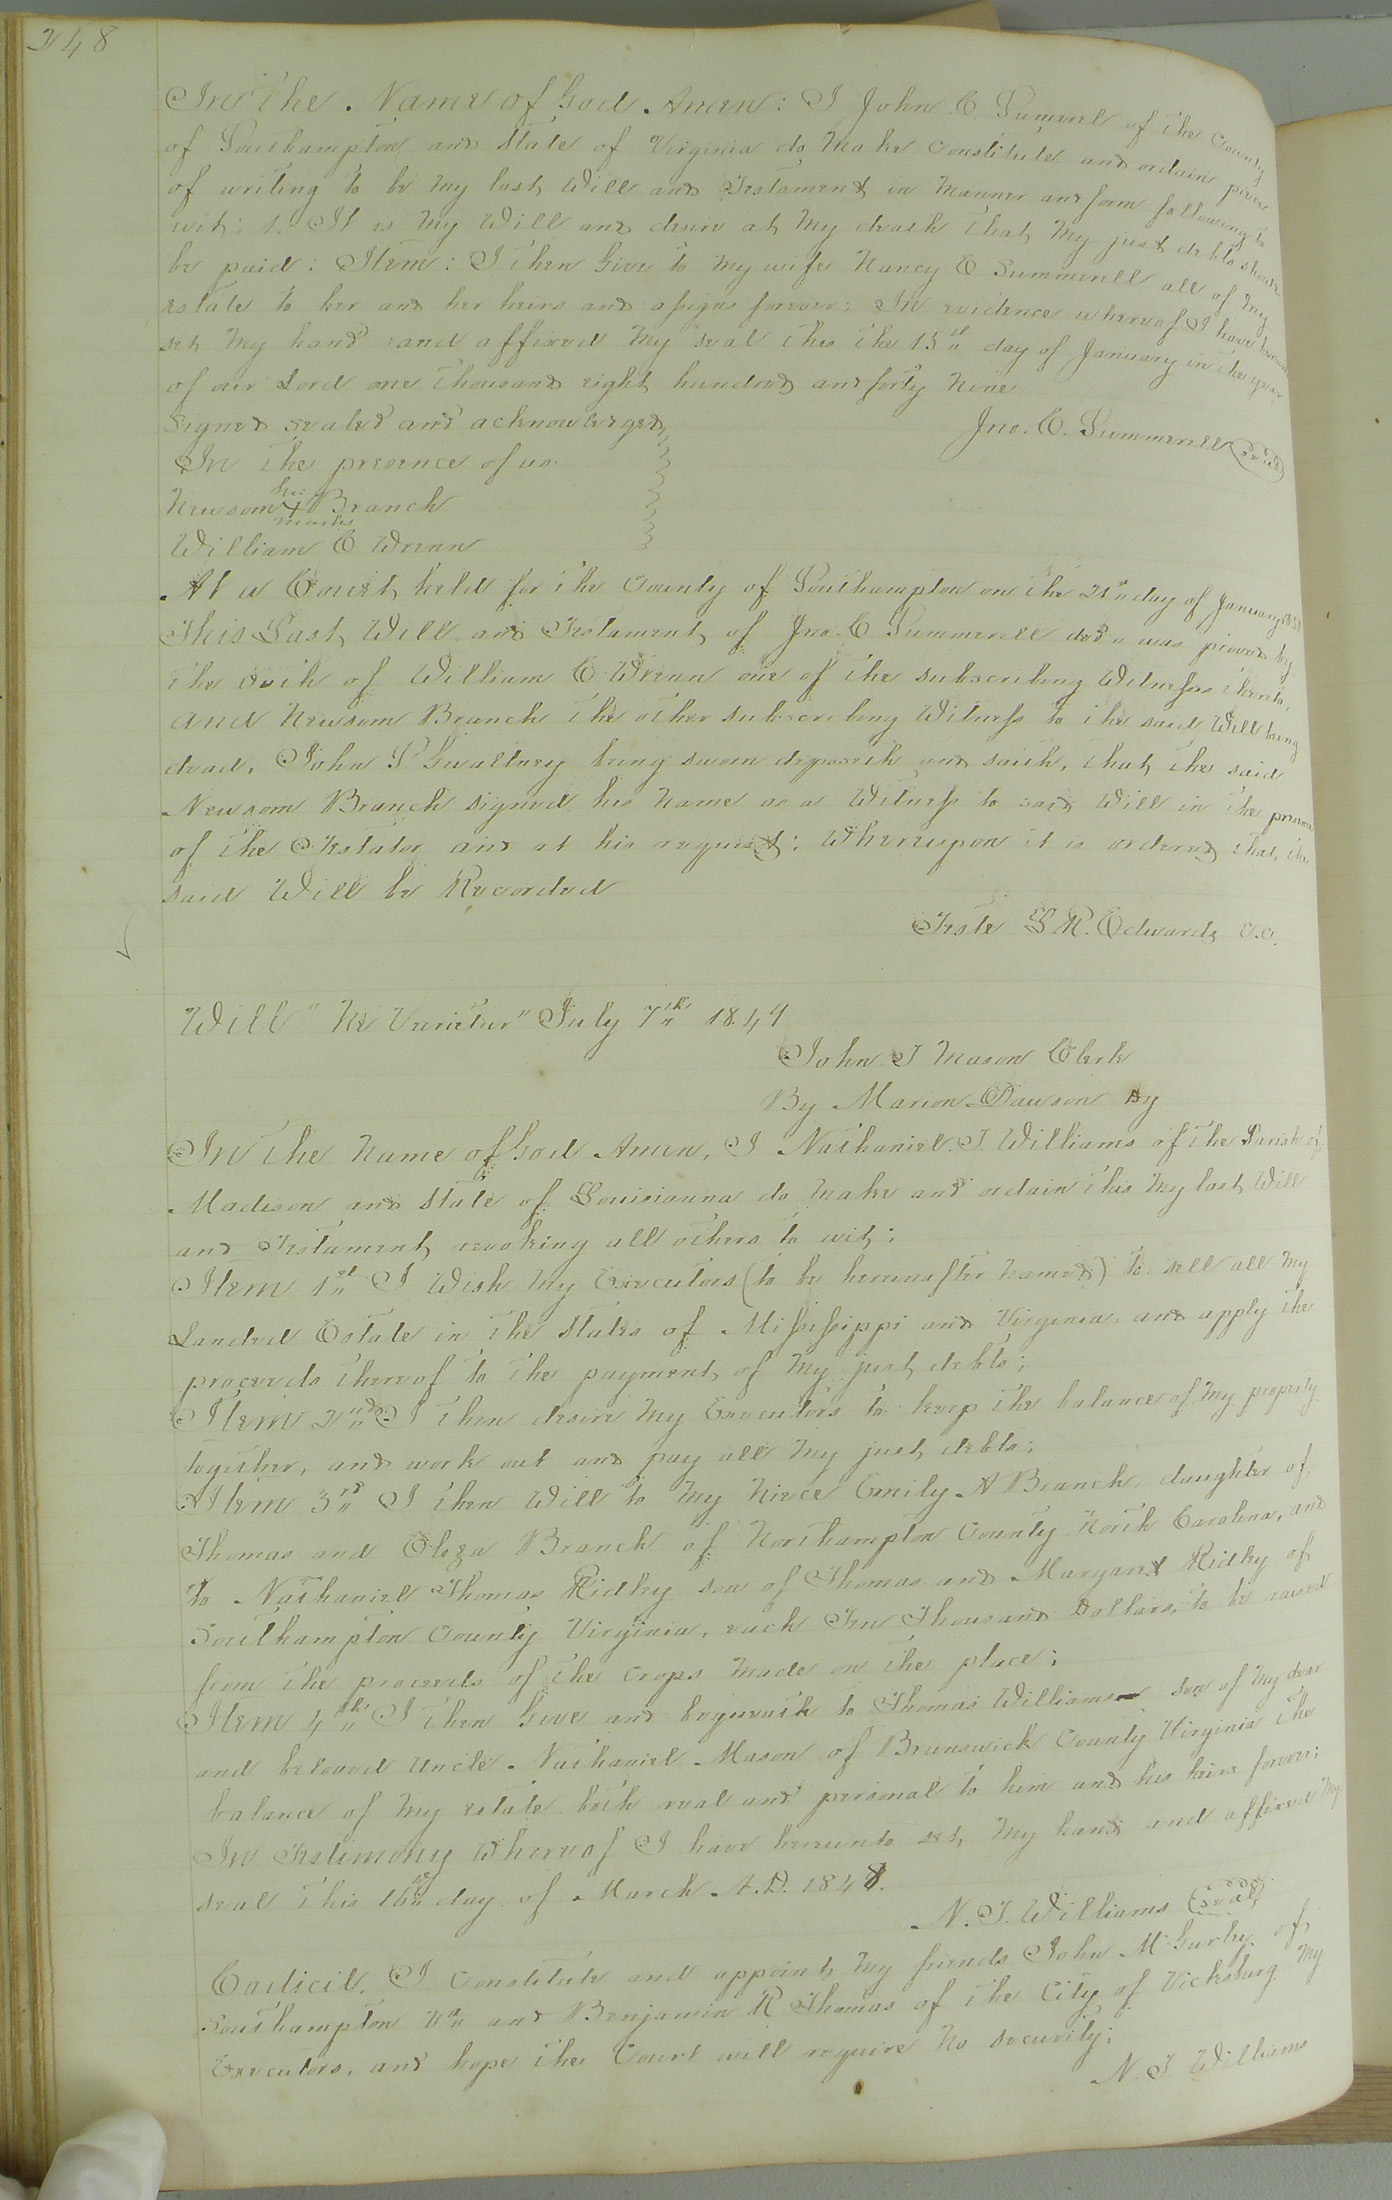 248
In the Name of God Amen: I John C. Sumerel of the County
of Southampton and State of Virginia do Make Constitute and ordain piece
of writing to be My last Will and Testament in Manner and form following to
wit: 1. It is My Will and desire at My death that, My just debts should
be paid: Item: I then Give to My wife Nancy E Summerell all of My
estate to her and her heirs and assigns forever: In evidence whereof I have hereunto
set My hand and affixed My seal this the 15th day of January in the year
of our Lord one thousand eight hundred and forty Nine
Jno. C. Summerell Seal
Signed sealed and acknowledged
In the presence of us
his
Newsom + Branch
mark
William C Wrenn
At a Court held for the County of Southampton on the 21st day of January
This Last Will and Testament of Jno. C Summerell decd was proved by
the Oath of William C Wrenn one of the subscribing Witnesses thereto,
and Newsom Branch the other subscribing Witness to the said Will being
dead, John P Gwaltney being sworn deposeth and saith, that the said
Newsom Branch signed his Name as a Witness to said Will in the presence
of the Testator and at his request; Whereupon it is ordered that the
said Will be Recorded
Teste L R. Edwards C.C.
Will "Ne Varietur" July 7th 1849
John T Mason Clerk
By Marion Dawson Dy
In the Name of God Amen, I Nathaniel T. Williams of the Parish of
Madison and State of Louisianna do Make and ordain this My last Will
and Testament, revoking all others to wit;
Item 1st I Wish My Executors (to be hereinafter Named) to sell all My
Landed Estate in the States of Mississippi and Virginia and apply the
proceeds thereof to the payment of My just debts;
Item 2nd I then desire My Executors to keep the balance of My property
together, and work out and pay all My just debts;
Item 3rd I then Will to My Niece Emily A Branch, daughter of
Thomas and Eliza Branch of Northampton County North Carolina, and
to Nathaniel Thomas Ridley son of Thomas and Margaret Ridley of
Southampton County Virginia, each Ten Thousand Dollars, to be raised
from the proceeds of the Crops Made on the place;
Item 4th I then Give and bequeath to Thomas Williams son of My dear
and beloved Uncle Nathaniel Mason of Brunswick County Virginia the
balance of My estate both real and personal to him and his heirs forever;
In Testimony Whereof I have hereunto set My hand and affixed My
seal this 16th day of March A.D. 1848.
N. T. Williams Seal
Codicil. I Constitute and appoint My friends John McGurley of
Southampton Va and Benjamin R Thomas of the City of Vicksburg My
Executors, and hope the Court will require No security;
N. T Williams